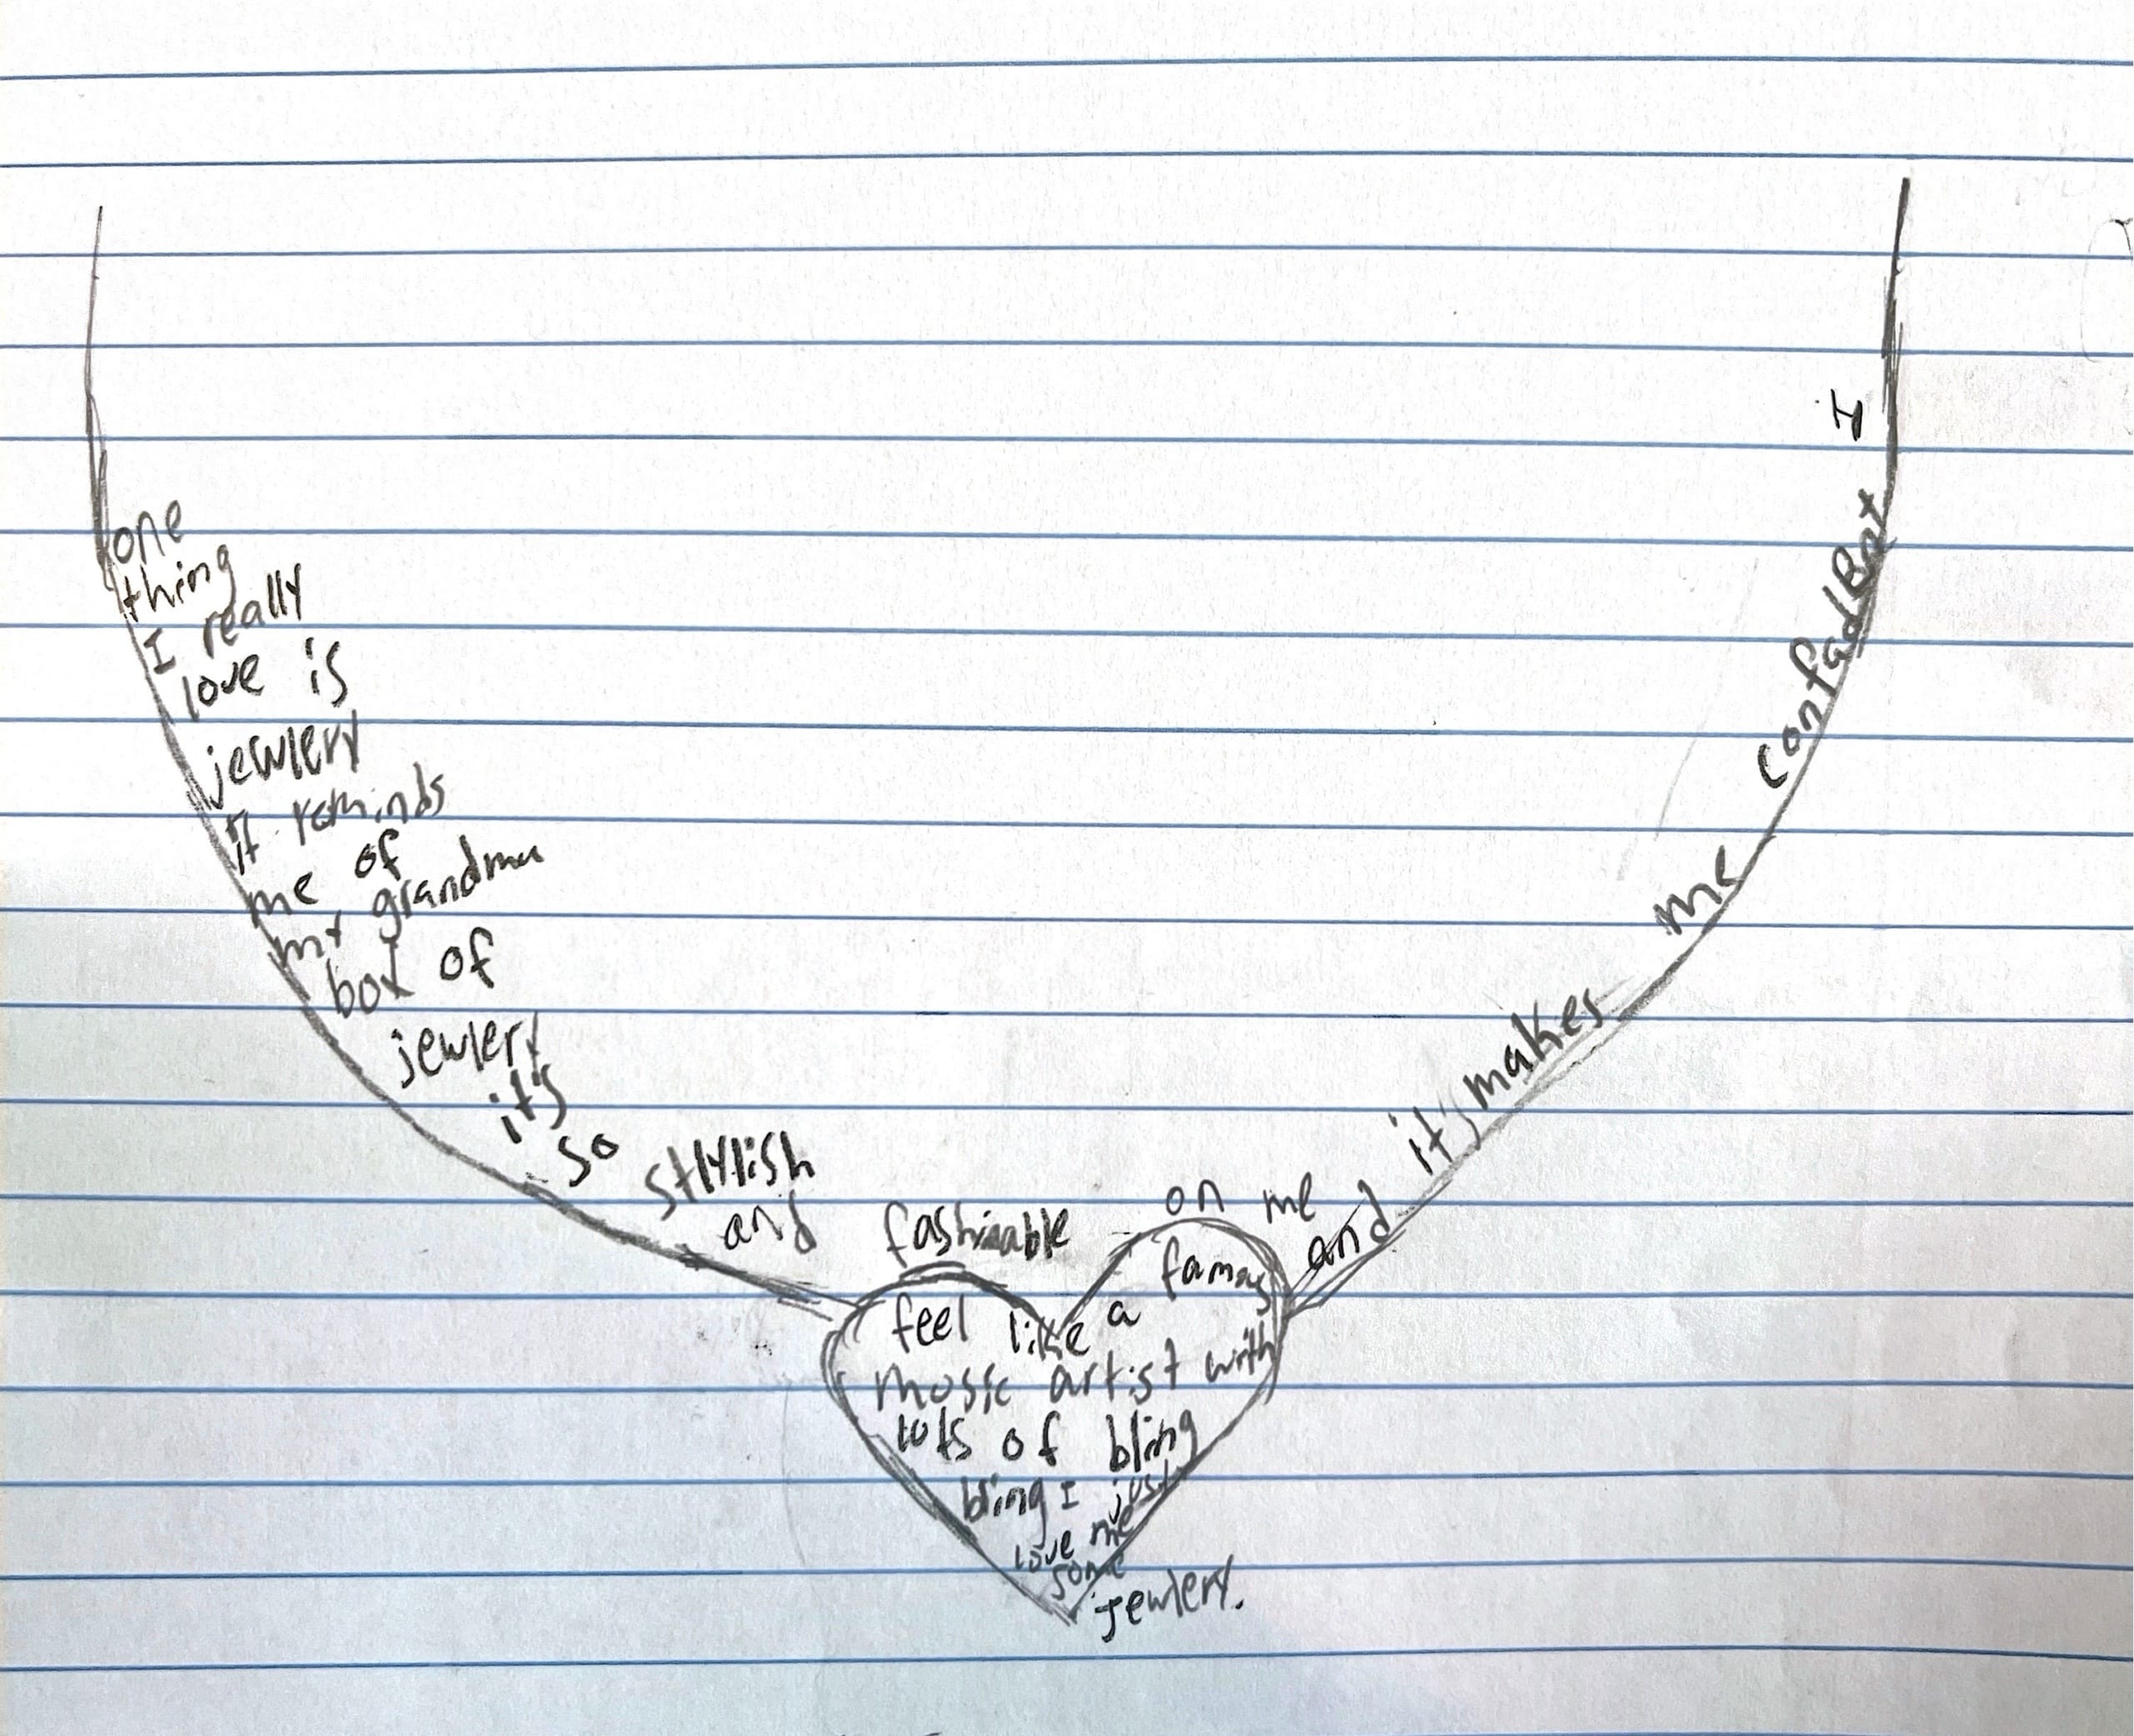 one
thing
I really
love is
jewlery
it reminds
me of
my grandma
box of
jewlery
it's
so
stylish
and
fashinable
on me
and
it's makes
me
confadent
I
feel like a famous
mosic artist with
lots of bling
bling I just
love me
some
jewlery.